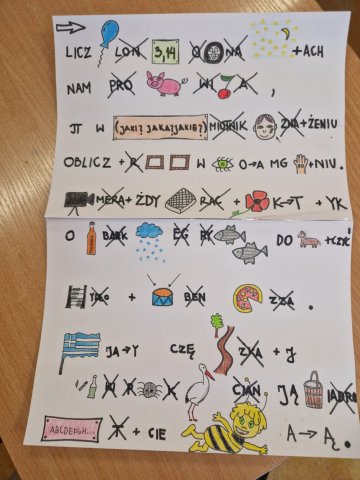 LICZ LON 3,14 O NA +ACH
NAM PRO WI A ,
JT W (JAKI? JAKA? JAKIE?) MIOTNIK ZKA+ŻENIU
OBLICZ + R W O→A MG +NIU.
MERA+ ŻDY RAC + K→T + YK
O BARK EG RY DO +CZYĆ
YDŁO + BEN ZZA .
JA→Y CZĘ ZKA + J
BI R K CIAN JA JABŁ
ABCDEFGH... T + CIE A→Ą.